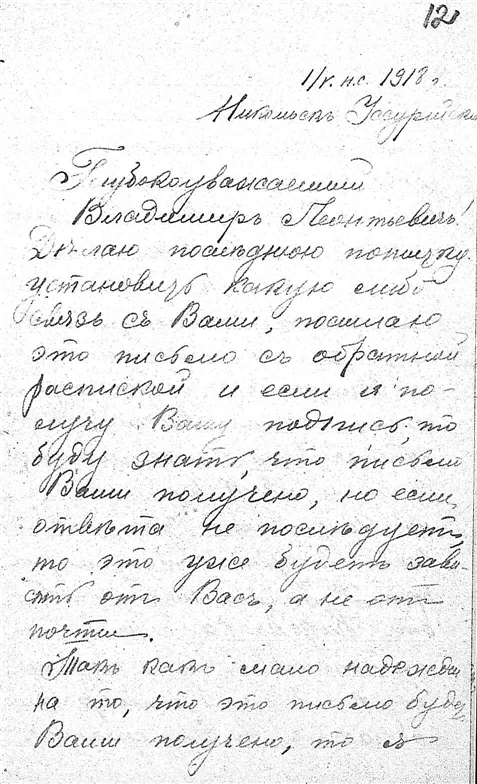 12
1/V. н.с. 1918 г.
Никольскъ Уссурійскі
Глубокоуважаемый
Владимиръ Леонтьевичъ!
Дѣлаю послѣднюю попытку
установить какую либо
связь съ Вами, посылаю
это письмо съ обратной
распиской и если я по-
лучу Вашу подпись, то
буду знать, что письмо
Вами получено, но если
отвѣта не послѣдуетъ,
то это уже будетъ зави-
сѣть отъ Васъ, а не отъ
почты.
Такъ какъ мало надежды
на то, что это письмо буде
Вами получено, то я